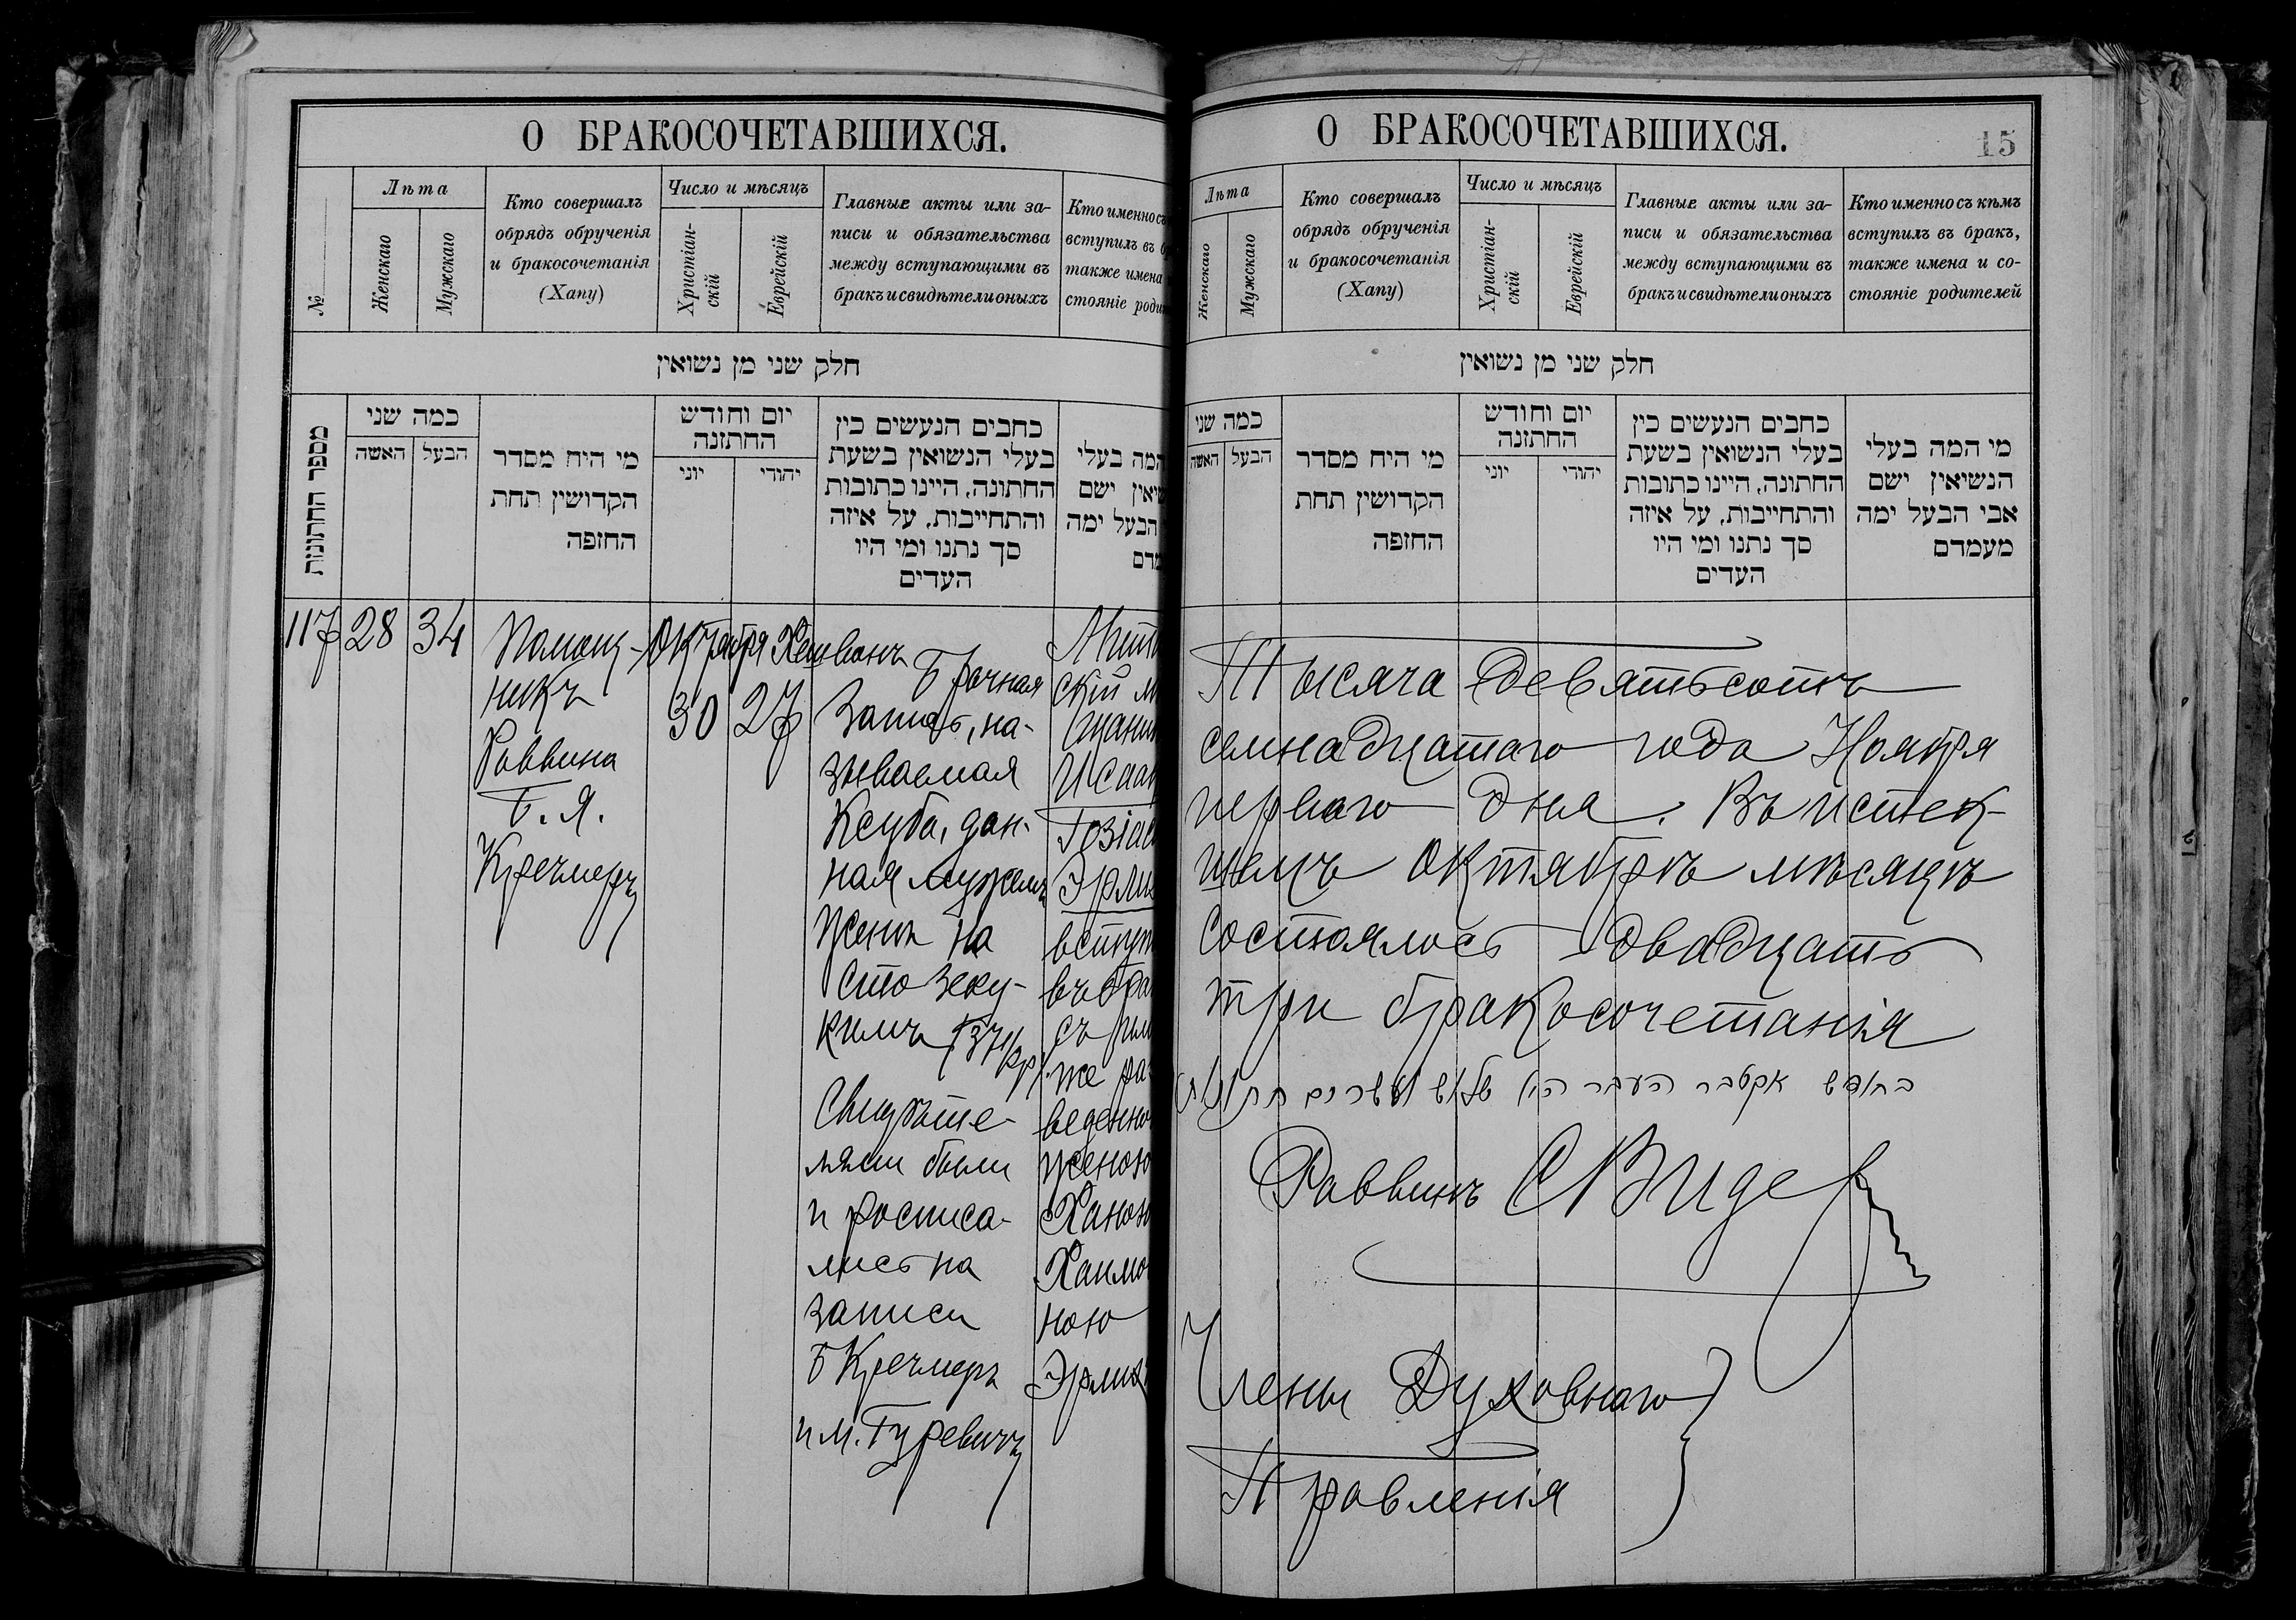 О БРАКОСОЧЕТАВШИХСЯ.
№
Лѣта
Женскаго
Мужскаго
Кто совершалъ
обрядъ обрученія
и бракосочетанія
(Хапу)
Число и мѣсяцъ
Христіан-
скій
Еврейскій
Главные акты или за-
писи и обязательства
между вступающими въ
бракъ и свидѣтели оныхъ
Кто именно съ
вступилъ въ
также имена
стояніе
חלק שני מן נשואין
מספר החתונות
כמה שני
האשה
הבעל
מי היח מסדר
הקדושין תחת
החופה
יום וחודש
החתונה
יוני
יהודי
כתבים הנעשים בין
בעלי הנשואין בשעת
החתונה, היינו כתובות
והתחייבות, על איזה
סך נתנו ומי היו
העדים
המה בעלי
ישם
הבעל ימה
117
28
34
Помощ-
никъ
Раввина
Б. Я.
Кречмеръ
Октября
30
Хешванъ
27
Брачная
Запись, на-
зываемая
Ксуба, дан-
ная мужемъ
женѣ на
сто зеку-
кимъ
Свидѣте-
лями были
и росписа-
лись на
записи
Б Кречмеръ
и М. Гуревичъ
скій
Эрли
въ бра
съ
же ра
веденно
женою
Ханою
Хаимо
ною
О БРАКОСОЧЕТАВШИХСЯ.
15
Лѣта
Женскаго
Мужскаго
Кто совершалъ
обрядъ обрученія
и бракосочетанія
(Хапу)
Число и мѣсяцъ
Христіан-
скій
Еврейскій
Главные акты или за-
писи и обязательства
между вступающими въ
бракъ и свидѣтели оныхъ
Кто именно съ кѣмъ
вступилъ въ бракъ,
также имена и со-
стояніе родителей
חלק שני מן נשואין
כמה שני
האשה
הבעל
מי היח מסדר
הקדושין תחת
החופה
יום וחודש
החתונה
יוני
יהודי
כתבים הנעשים בין
בעלי הנשואין בשעת
החתונה, היינו כתובות
והתחייבות, על איזה
סך נתנו ומי היו
העדים
מי המה בעלי
הנשיאין ישם
אבי הבעל ימה
מעמדם
Тысяча девятьсотъ
семнадцатаго года Ноября
перваго дня. Въ истек-
шемъ Октябрѣ мѣсяцѣ
состоялось двадцать
три бракосочетанія
בחודש אקטבר העבר היו שלוש ועשרים
Раввинъ
Члены Духовнаго
Правленія